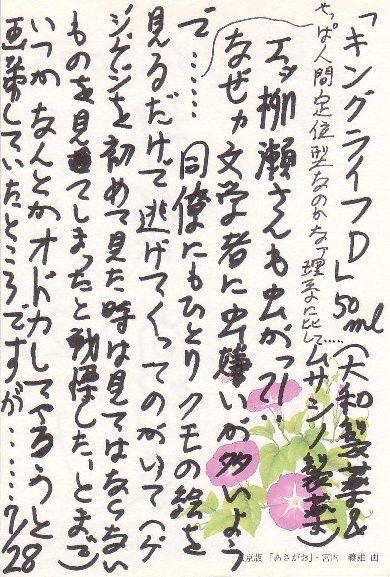 「キングライフDL 50ml（大和製薬&ムサシノ製薬）
やっぱ人間定位型なのかなァ理系に比して.....
エッ柳瀬さんも虫がっ!!
なぜか文学者に虫嫌いが多いよう
で……同僚にもひとりクモの絵を
見るだけで逃げてくってのがいて（ゲ
ジゲジを初めて見た時は見てはならない
ものを見てしまったと戦慄した―とまで）
いつかなんとかオドカしてやろうと
画策していたところですが……7/28
版「あさがお」・宮内 画